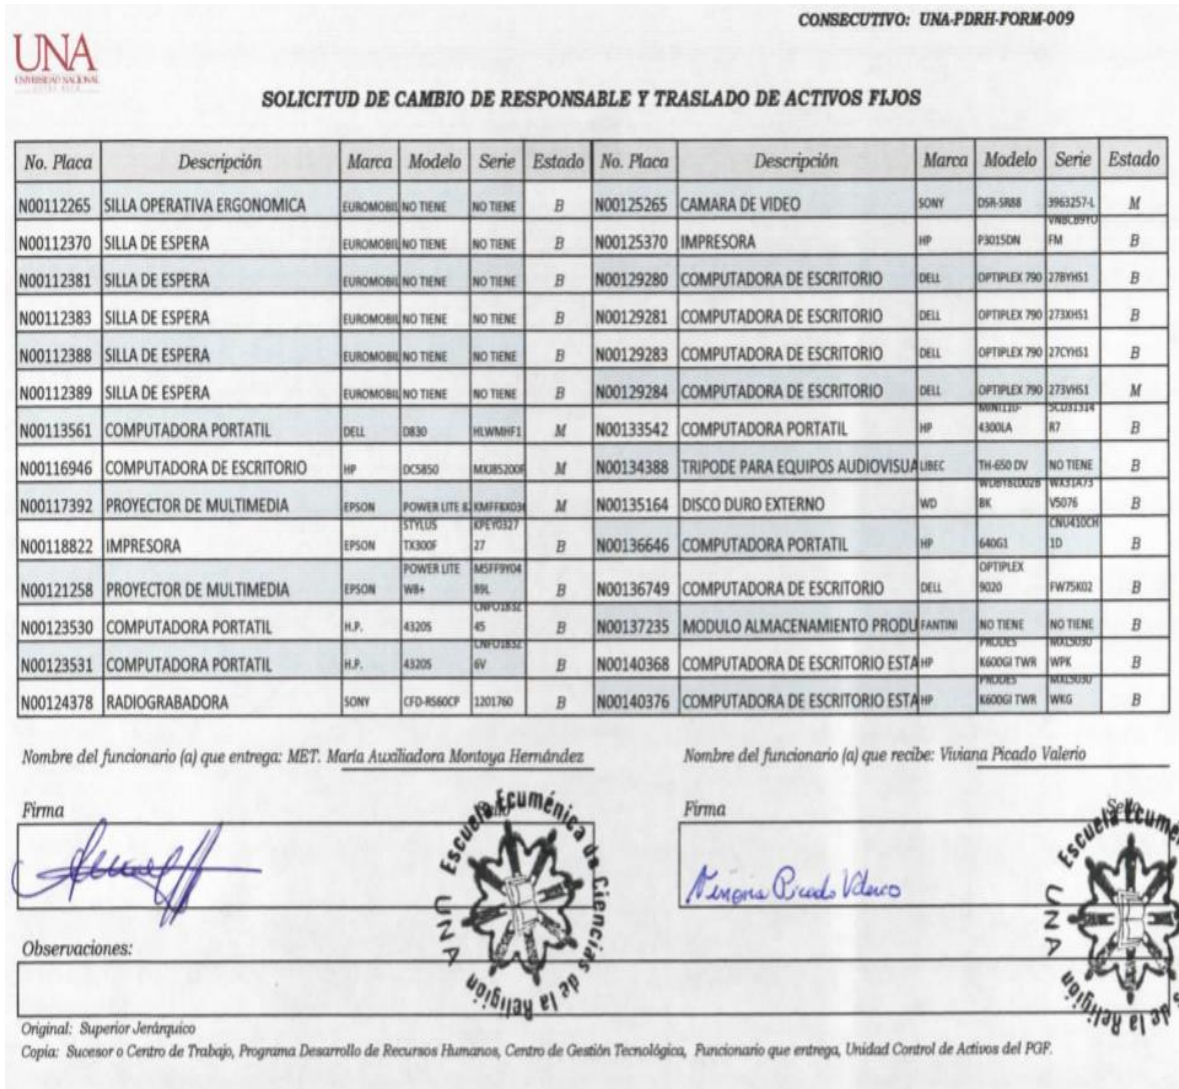 CONSECUTIVO: UNA-PDRH-FORM-009
UNA
UNIVERSIDAD NACIONAL
SOLICITUD DE CAMBIO DE RESPONSABLE Y TRASLADO DE ACTIVOS FIJOS
No. Placa Descripción Marca Modelo Serie Estado No. Placa Descripción Marca Modelo Serie Estado
N00112265 SILLA OPERATIVA ERGONOMICA EUROMOBIL NO TIENE NO TIENE B N00125265 CAMARA DE VIDEO SONY DSR-SR88 3963257-L M
N00112370 SILLA DE ESPERA EUROMOBIL NO TIENE NO TIENE B N00125370 IMPRESORA HP P3015DN VNBCB9YU FM B
N00112381 SILLA DE ESPERA EUROMOBIL NO TIENE NO TIENE B N00129280 COMPUTADORA DE ESCRITORIO DELL OPTIPLEX 790 27BYHS1 B
N00112383 SILLA DE ESPERA EUROMOBIL NO TIENE NO TIENE B N00129281 COMPUTADORA DE ESCRITORIO DELL OPTIPLEX 790 273XHS1 B
N00112388 SILLA DE ESPERA EUROMOBIL NO TIENE NO TIENE B N00129283 COMPUTADORA DE ESCRITORIO DELL OPTIPLEX 790 27CYHS1 B
N00112389 SILLA DE ESPERA EUROMOBIL NO TIENE NO TIENE B N00129284 COMPUTADORA DE ESCRITORIO DELL OPTIPLEX 790 273VHS1 M
N00113561 COMPUTADORA PORTATIL DELL D830 HLWMHF1 M N00133542 COMPUTADORA PORTATIL HP MINI110-4300LA 5CD31314 R7 B
N00116946 COMPUTADORA DE ESCRITORIO HP DC5850 MXJ85200F M N00134388 TRIPODE PARA EQUIPOS AUDIOVISUA LIBEC TH-650 DV NO TIENE B
N00117392 PROYECTOR DE MULTIMEDIA EPSON POWER LITE 8 M N00135164 DISCO DURO EXTERNO WD BK WX31A73 V5076 B
N00118822 IMPRESORA EPSON STYLUS TX300F KPEY0327 27 B N00136646 COMPUTADORA PORTATIL HP 640G1 CNU410CH 1D B
N00121258 PROYECTOR DE MULTIMEDIA EPSON POWER LITE W8+ M5FF9Y04 89L B N00136749 COMPUTADORA DE ESCRITORIO DELL OPTIPLEX 9020 FW75K02 B
N00123530 COMPUTADORA PORTATIL H.P. 4320S 45 B N00137235 MODULO ALMACENAMIENTO PRODU FANTINI NO TIENE NO TIENE B
N00123531 COMPUTADORA PORTATIL H.P. 4320S 6V B N00140368 COMPUTADORA DE ESCRITORIO ESTA HP PRODES K600GI TWR MXL5030 WPK B
N00124378 RADIOGRABADORA SONY CFD-RS60CP 1201760 B N00140376 COMPUTADORA DE ESCRITORIO ESTA HP PRODES K600GI TWR MXL5030 WKG B
Nombre del funcionario (a) que entrega: MET. María Auxiliadora Montoya Hernández
Nombre del funcionario (a) que recibe: Viviana Picado Valerio
Firma
Escuela Ecuménica de Ciencias de la Religión
UNA
Firma Sello
Picado Valerio
Escuela Ecumé
de la Religión
UNA
Observaciones:
Original: Superior Jerárquico
Copia: Sucesor o Centro de Trabajo, Programa Desarrollo de Recursos Humanos, Centro de Gestión Tecnológica, Funcionario que entrega, Unidad Control de Activos del PGF.